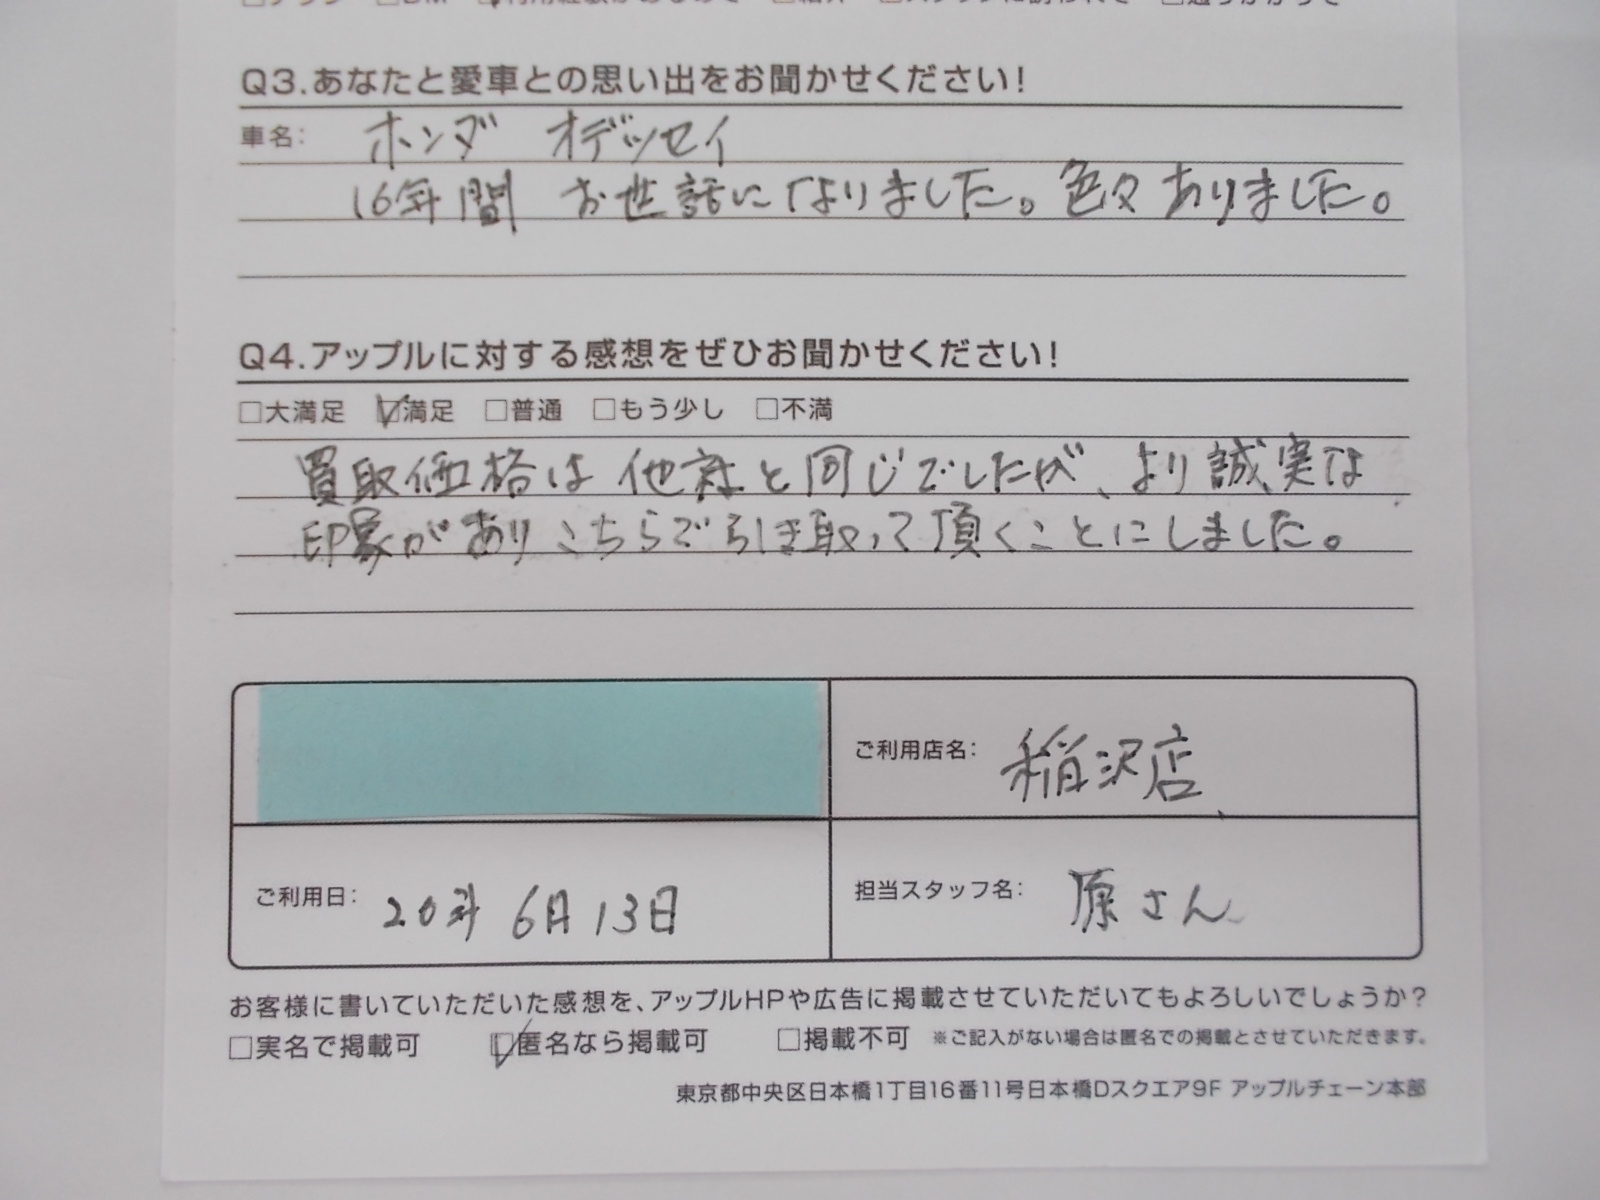 □チラシ □DM ☑利用経験があるので □紹介 □スタッフに誘われて □通りがかって
Q3.あなたと愛車との思い出をお聞かせください!
車名: ホンダ オデッセイ
16年間 お世話になりました。色々ありました。
Q4.アップルに対する感想をぜひお聞かせください!
□大満足 ☑満足 □普通 □もう少し □不満
買取価格は他社と同じでしたが、より誠実な
印象がありこちらで引き取って頂くことにしました。
ご利用店名: 稲沢店
ご利用日: 20年 6月13日
担当スタッフ名: 原さん
お客様に書いていただいた感想を、アップルHPや広告に掲載させていただいてもよろしいでしょうか?
□実名で掲載可 ☑匿名なら掲載可 □掲載不可 ※ご記入がない場合は匿名での掲載とさせていただきます。
東京都中央区日本橋1丁目16番11号日本橋Dスクエア9F アップルチェーン本部